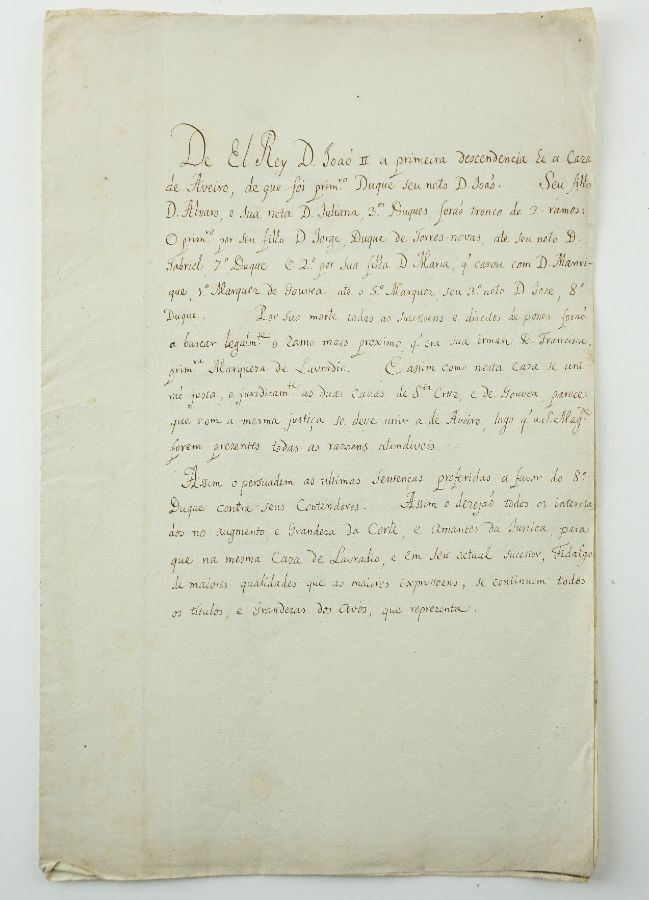 De El Rey D. Joaõ II a primeira descendencia he a Caza
de Aveiro, de que foi prim.ro Duque seu neto D. Joaõ. Seu filho
D. Alvaro, e sua neta D. Juliana, 3.os Duques, foraõ tronco de 2 ramos:
O prim.ro por seu filho D Jorge, Duque de Torres-novas, ate seu neto D.
Gabriel 7º Duque. O 2º por sua filha D Maria, q̃ cazou com D. Manrri-
que, 1º Marquez de Gouvea ate o 5º Marquez, seu 3º neto D. Joze, 8º
Duque. Por sua morte todas as sucessoens e direitos de posses foraõ
a buscar legitim.te o ramo mais proximo, q̃ era sua irman D. Francisca,
prim.ra Marqueza de Lavradio. E assim como nesta caza se uni-
raõ justa, e juridicam.te as duas cazas de S.ta Cruz, e de Gouvea, parece
que com a mesma justiça se deve unir a de Aveiro, logo q̃ a S. Mag.de
forem presentes todas as razoens attendiveis.
Assim o persuadem as ultimas sentenças proferidas a favor do 8º
Duque contra seus Contendores. Assim o dezejaõ todos os interessa-
dos no augmento e Grandeza da Corte, e Amantes da Justiça, para
que na mesma Caza de Lavradio, e em seu actual sucessor, Fidalgo
de maiores qualidades que as maiores expressoens, se continuem todos
os titulos, e Grandezas dos Avós, que representa.